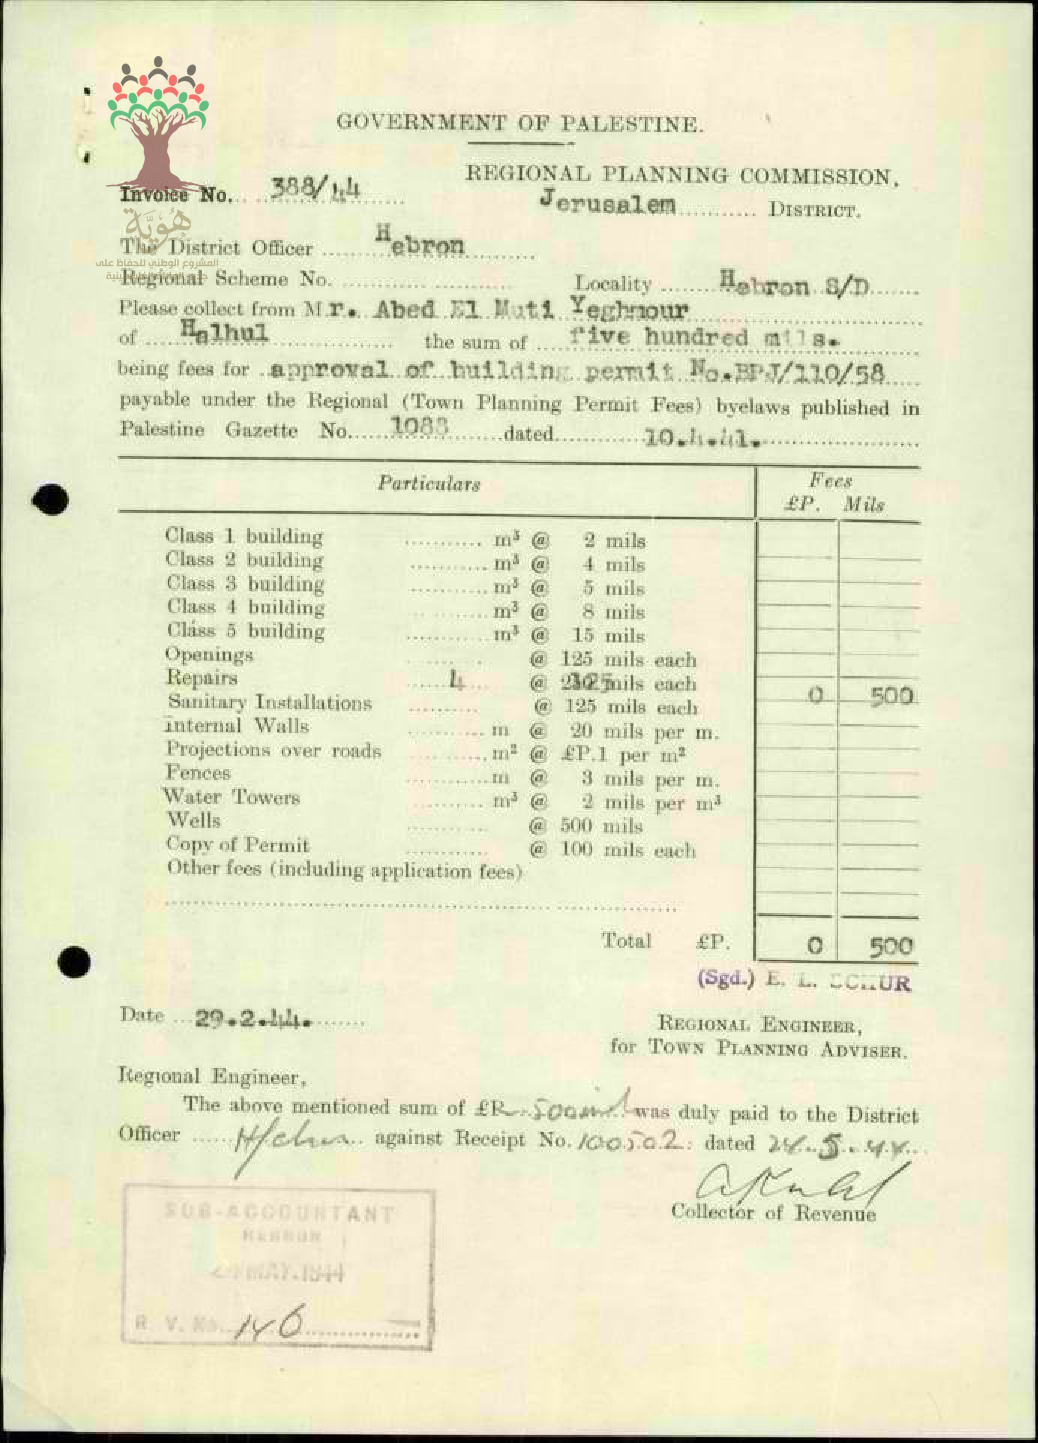 GOVERNMENT OF PALESTINE.
REGIONAL PLANNING COMMISSION.
Invoice No. 388/44
Jerusalem DISTRICT.
هُوِيَّة
The District Officer Hebron
المشروع الوطني للحفاظ على
Regional Scheme No. Locality Hebron S/D
Please collect from Mr. Abed El Muti Yeghmour
of Halhul the sum of five hundred mils.
being fees for approval of building permit No.BPJ/110/58
payable under the Regional (Town Planning Permit Fees) byelaws published in
Palestine Gazette No. 1088 dated 10.4.41.
Particulars Fees
£P. Mils
Class 1 building m³ @ 2 mils
Class 2 building m³ @ 4 mils
Class 3 building m³ @ 5 mils
Class 4 building m³ @ 8 mils
Class 5 building m³ @ 15 mils
Openings @ 125 mils each
Repairs 4 @ 125 mils each 0 500
Sanitary Installations @ 125 mils each
Internal Walls m @ 20 mils per m.
Projections over roads m² @ £P.1 per m²
Fences m @ 3 mils per m.
Water Towers m³ @ 2 mils per m³
Wells @ 500 mils
Copy of Permit @ 100 mils each
Other fees (including application fees)
Total £P. 0 500
(Sgd.) E. L. SCHUR
Date 29.2.44.
REGIONAL ENGINEER,
for TOWN PLANNING ADVISER.
Regional Engineer,
The above mentioned sum of £P. 500 mils was duly paid to the District
Officer against Receipt No. 100502 dated 24.5.44
Collector of Revenue
SUB-ACCOUNTANT
HEBRON
MAY.1944
R. V. No. 146